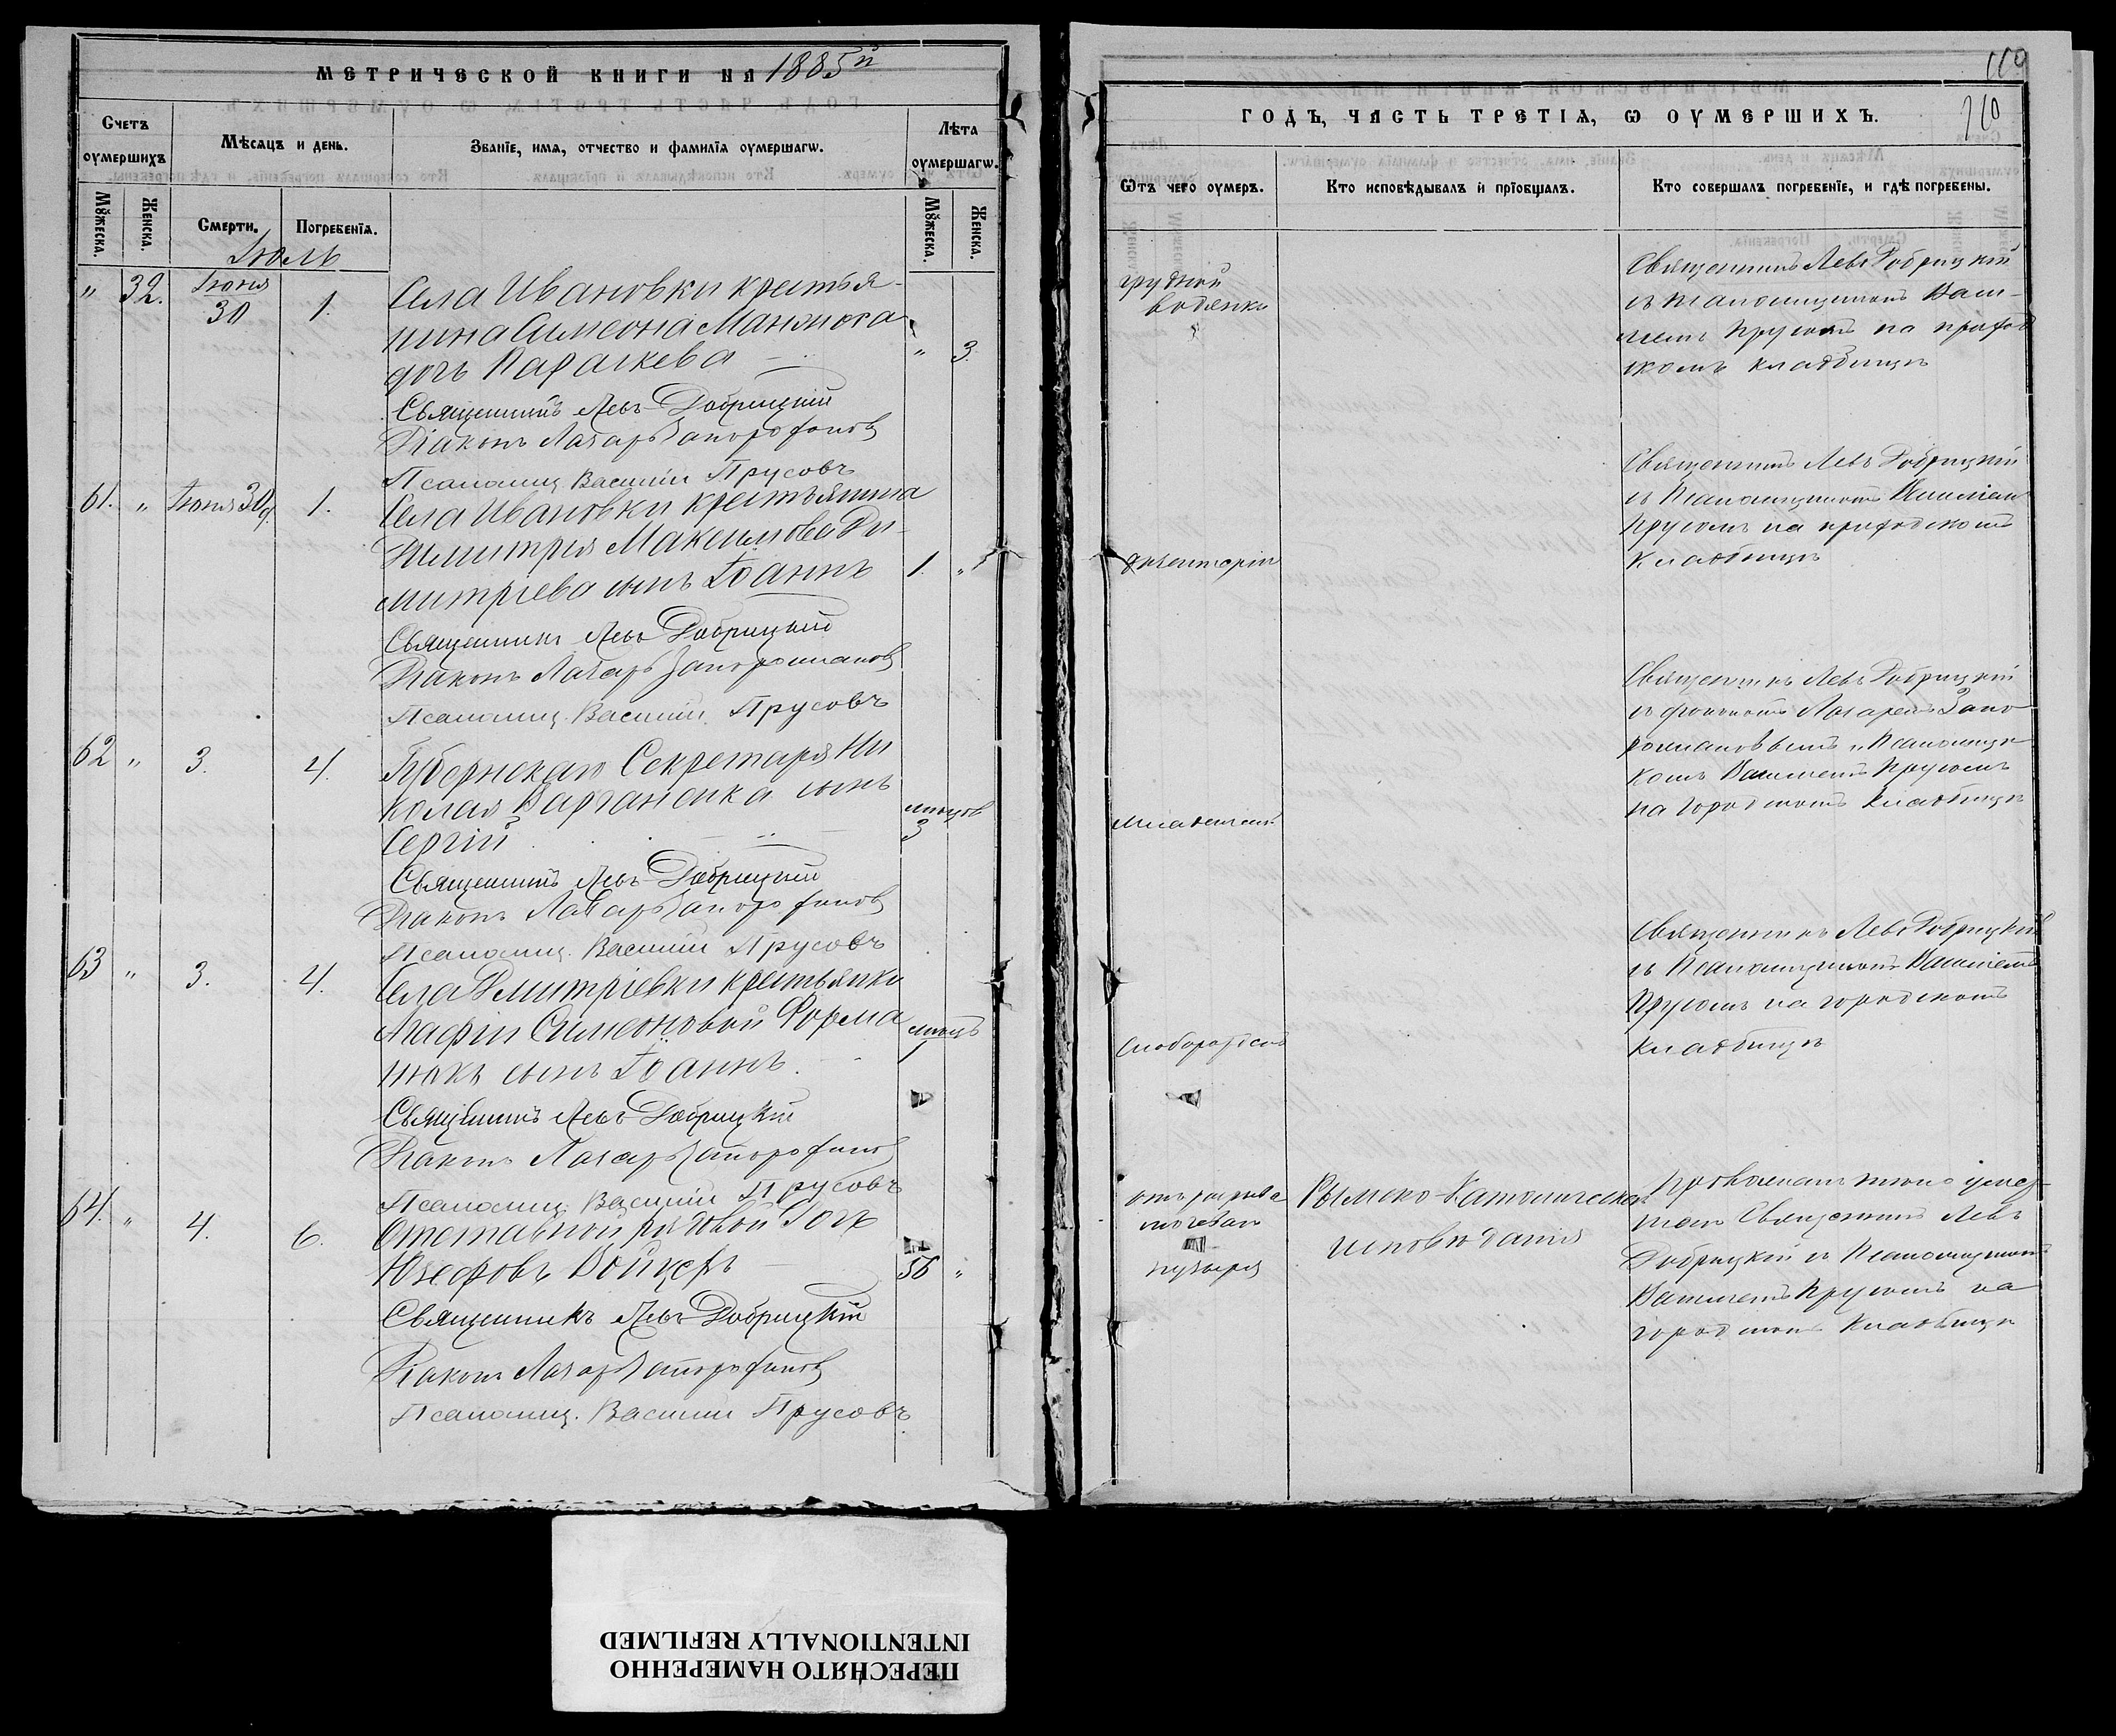 МЕТРИЧЕСКОЙ КНИГИ НА 1885й
Счетъ оумершихъ
Мѣсяцъ и день.
Званіе, имя, отчество и фамилія оумершагѡ.
Лѣта оумершагѡ.
Мꙋжеска.
Женска.
Смерти.
Погребенїя.
Мꙋжеска.
Женска.
Іюль
" 32. Іюня 30 1. Села Ивановки крестья-
нина Симеона
дочь Параскева " 3.
Священникъ Левъ Добрицкій
Діаконъ Лазарь
Псаломщ Василій Прусовъ
61. " Іюня 30 1. Села Ивановки крестьянина
Димитрія Максимова Ди-
митріева сынъ Іоаннъ 1. "
Священникъ Левъ Добрицкій
Діаконъ Лазарь
Псаломщ. Василій Прусовъ
62 " 3. 4. Губернскаго Секретаря Ни
колая сынъ
Сергій 3
Священникъ Левъ Добрицкій
Діаконъ Лазарь
Псаломщ. Василій Прусовъ
63 " 3. 4. Села Дмитріевки крестьянки
Агафіи Симеоновой Форма
нюкъ сынъ Іоаннъ. 1
Священникъ Левъ Добрицкій
Діаконъ Лазарь
Псаломщ. Василій Прусовъ
64. " 4. 6. Отставной рядовой
Юзефовъ 56 "
Священникъ Левъ Добрицкій
Діаконъ Лазарь
Псаломщ. Василій Прусовъ
110
110
ГОДЪ, ЧАСТЬ ТРЕТІЯ, Ѡ ОУМЕРШИХЪ.
Ѿтъ чего оумеръ.
Кто исповѣдывалъ и прїобщалъ.
Кто совершалъ погребенїе, и гдѣ погребены.
грудной
водянки
Священникъ Левъ Добрицкій
съ Псаломщикомъ Васи-
ліемъ Прусомъ на приход
скомъ кладбищѣ
дизентеріи
Священникъ Левъ Добрицкій
съ Псаломщикомъ Василіем
Прусомъ на приходскомъ
Кладбищѣ
Священникъ Левъ Добрицкій
съ діакономъ Лазаремъ Запо
рожановымъ и Псаломщи
комъ Василіемъ Прусомъ
на городскомъ Кладбищѣ
Священникъ Левъ Добрицкій
съ Псаломщикомъ Василіемъ
Прусомъ на городскомъ
Кладбищѣ
отъ
пузыря
Рымско-Католическаго
исповѣданія
Священникъ Левъ
Добрицкій съ Псаломщикомъ
Василіемъ Прусомъ на
городскомъ Кладбищѣ
ПЕРЕСНЯТО НАМЕРЕННО
INTENTIONALLY REFILMED